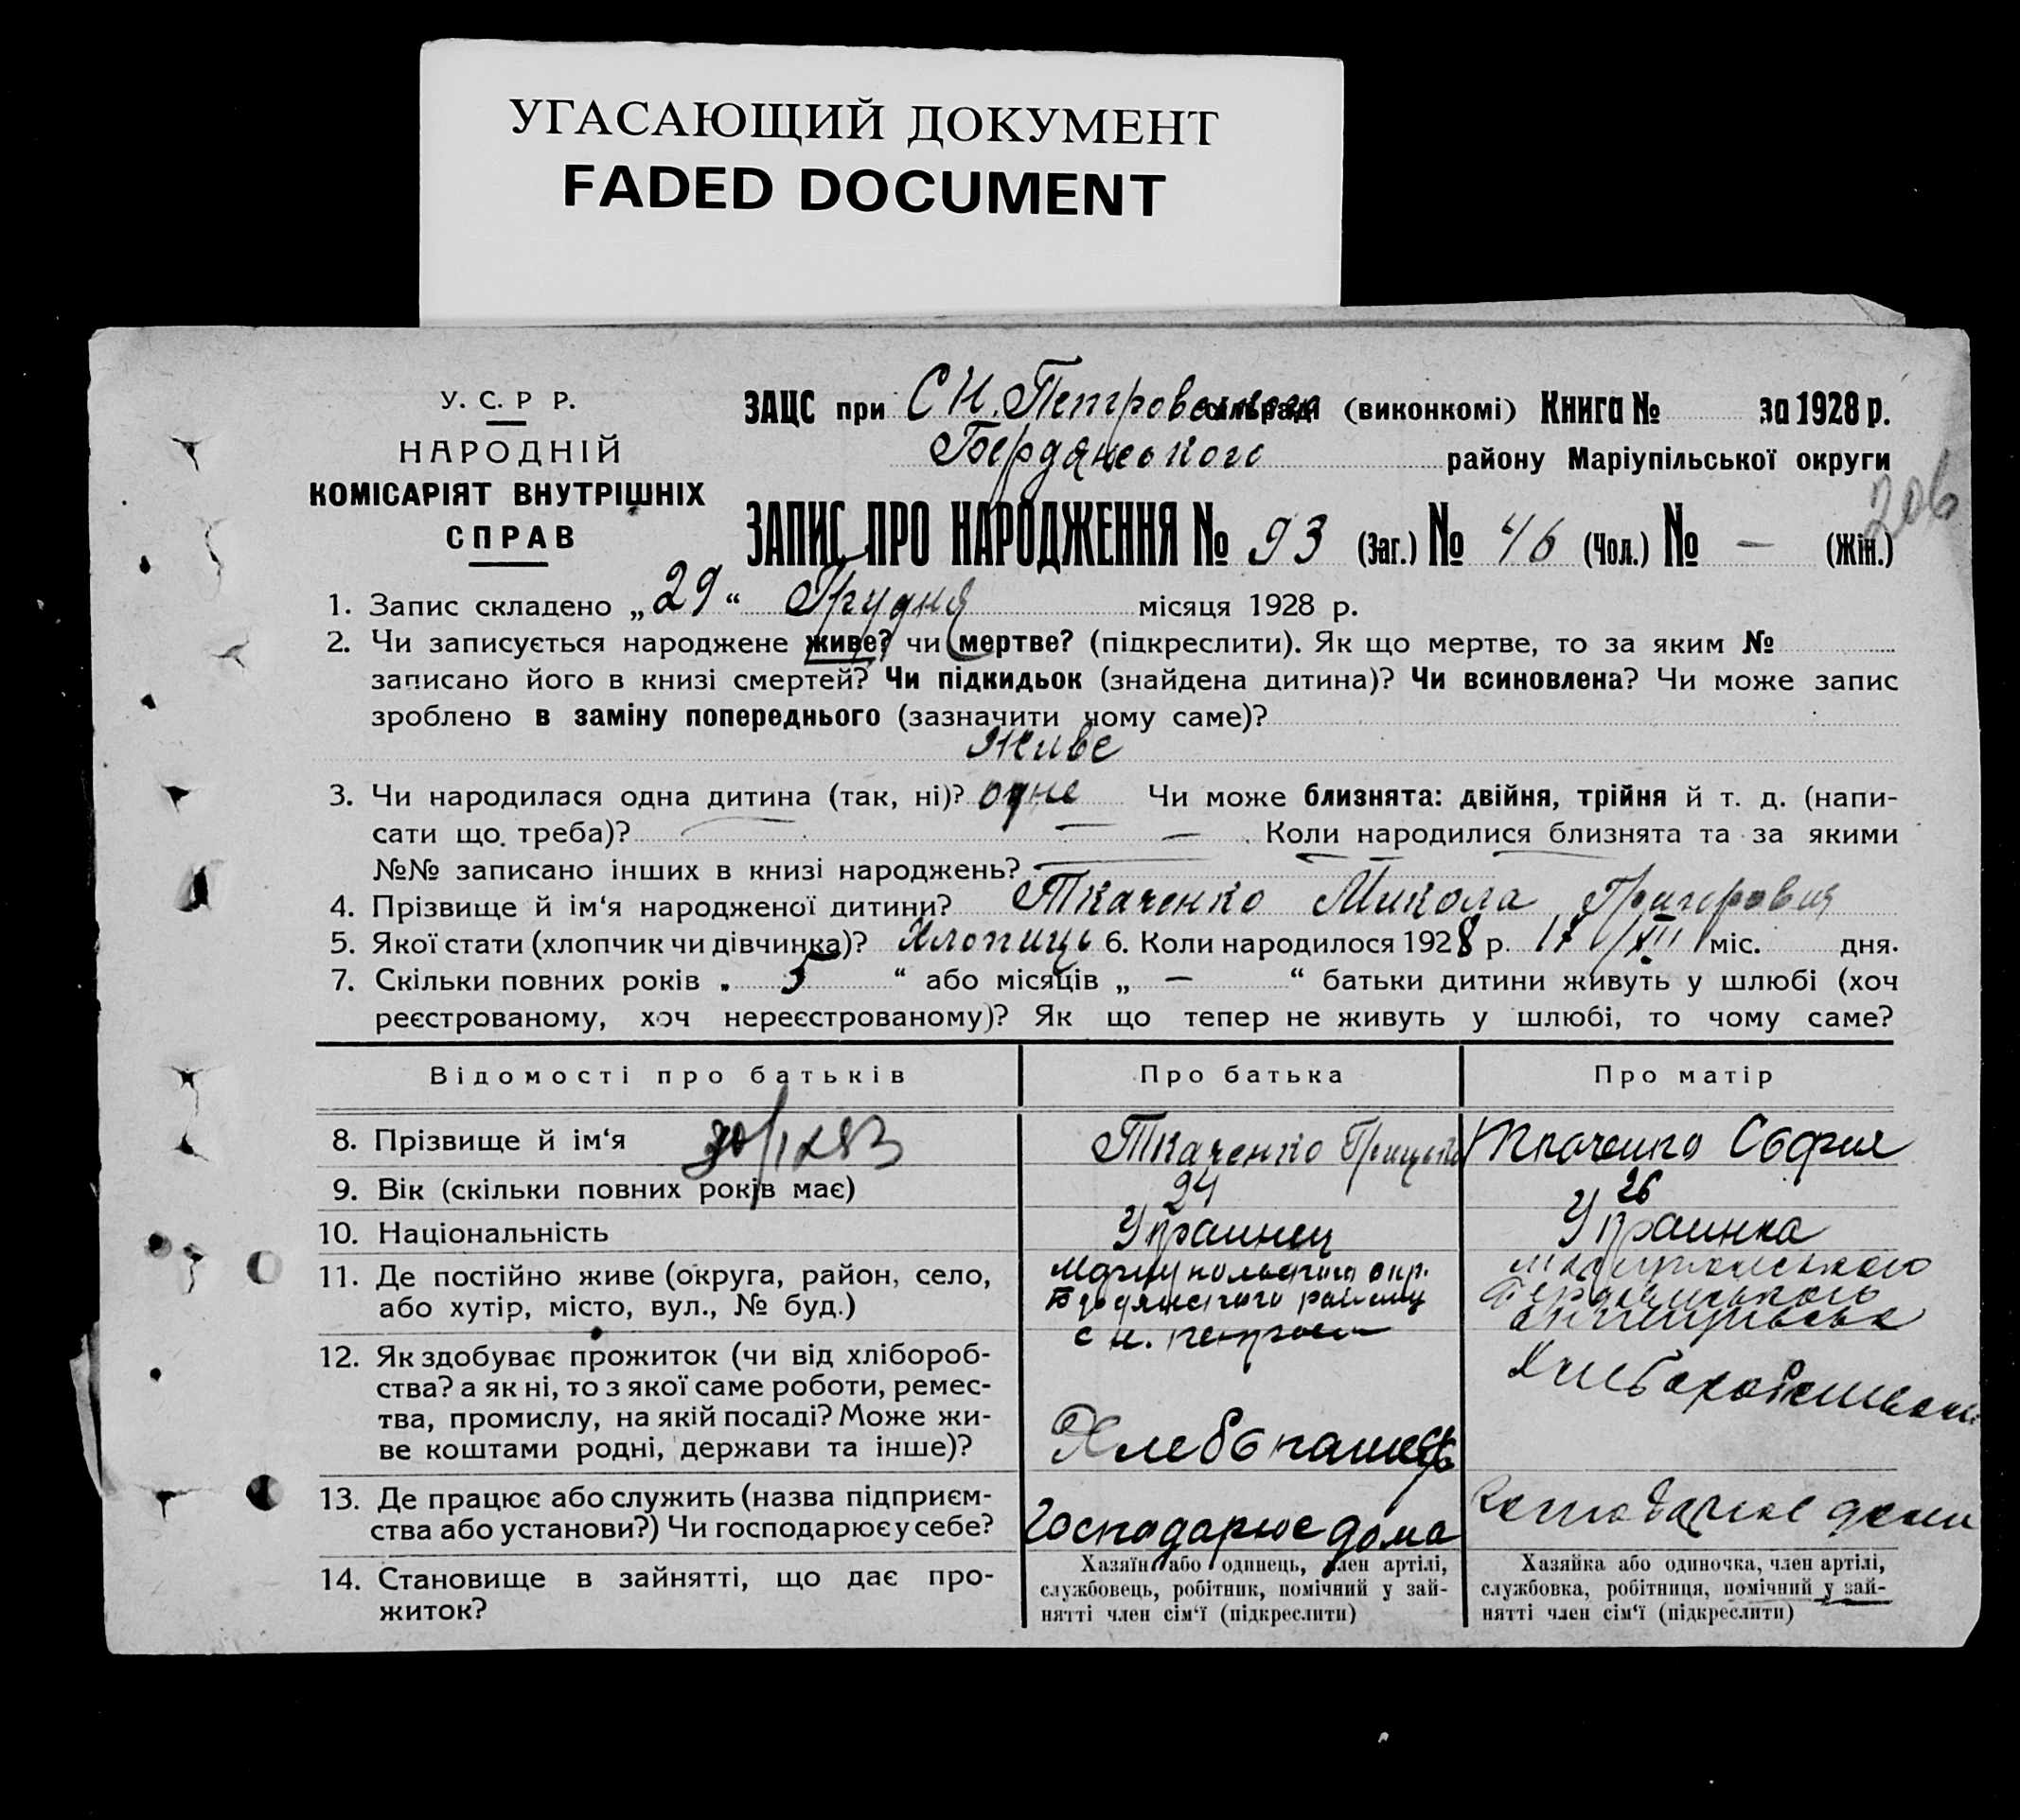 УГАСАЮЩИЙ ДОКУМЕНТ
FADED DOCUMENT
У. С. Р Р.
НАРОДНІЙ
КОМІСАРІЯТ ВНУТРІШНІХ
СПРАВ
ЗАЦС при С Н. Петровської сільраді (виконкомі) Книга № за 1928 р.
Бердянського району Маріупільської округи
206
ЗАПИС ПРО НАРОДЖЕННЯ № 93 (Заг.) № 46 (Чол.) № — (Жін.)
1. Запис складено „29“ Грудня місяця 1928 р.
2. Чи записується народжене живе? чи мертве? (підкреслити). Як що мертве, то за яким №
записано його в книзі смертей? Чи підкидьок (знайдена дитина)? Чи всиновлена? Чи може запис
зроблено в заміну попереднього (зазначити чому саме)?
Живе
3. Чи народилася одна дитина (так, ні)? одне Чи може близнята: двійня, трійня й т. д. (напи-
сати що треба)? — Коли народилися близнята та за якими
№№ записано інших в книзі народжень? —
4. Прізвище й ім‘я народженої дитини? Ткаченко Микола Григорович
5. Якої стати (хлопчик чи дівчинка)? Хлопиць 6. Коли народилося 1928 р. 17/XII міс. дня.
7. Скільки повних років „ 5 “ або місяців „ — “ батьки дитини живуть у шлюбі (хоч
реєстрованому, хоч нереєстрованому)? Як що тепер не живуть у шлюбі, то чому саме?
Відомості про батьків Про батька Про матір
8. Прізвище й ім‘я Ткаченко Грицько Ткаченко София
9. Вік (скільки повних років має) 24 26
10. Національність Украинец Украинка
11. Де постійно живе (округа, район, село,
або хутір, місто, вул., № буд.)
12. Як здобуває прожиток (чи від хлібороб-
ства? а як ні, то з якої саме роботи, ремес-
тва, промислу, на якій посаді? Може жи-
ве коштами родні, держави та інше)?
Хлебопашець
13. Де працює або служить (назва підприєм-
ства або установи?) Чи господарює у себе?
Господарює дома
14. Становище в зайнятті, що дає про-
житок?
Хазяїн або одинець, член артілі,
службовець, робітник, помічний у зай-
нятті член сім‘ї (підкреслити)
Хазяйка або одиночка, член артілі,
службовка, робітниця, помічний у зай-
нятті член сім‘ї (підкреслити)